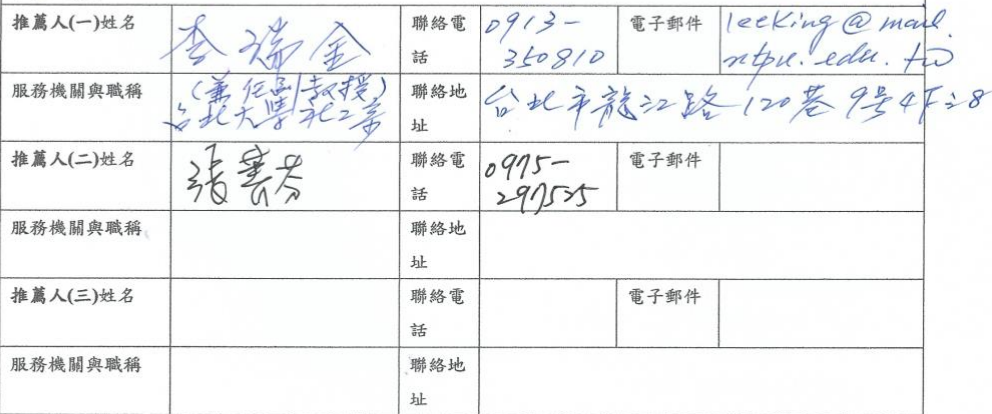 推薦人(一)姓名 李瑞金 聯絡電話 0913-350810 電子郵件 leeking@mail.ntpu.edu.tw
服務機關與職稱 (兼任副教授) 台北大學社工系 聯絡地址 台北市龍江路120巷9号4F之8
推薦人(二)姓名 張 芬 聯絡電話 0975-297525 電子郵件
服務機關與職稱 聯絡地址
推薦人(三)姓名 聯絡電話 電子郵件
服務機關與職稱 聯絡地址